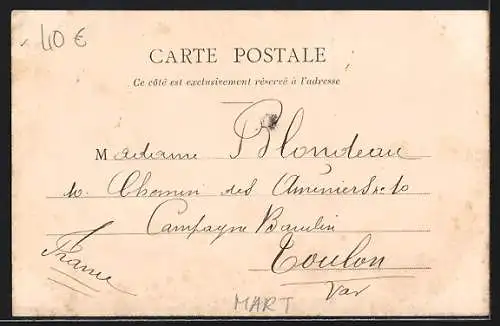 40 €
CARTE POSTALE
Ce côté est exclusivement réservé à l'adresse
Madame Blondeau
10. Chemin des Amèniers. 10
Campagne Baudin
Toulon
Var
France
MART